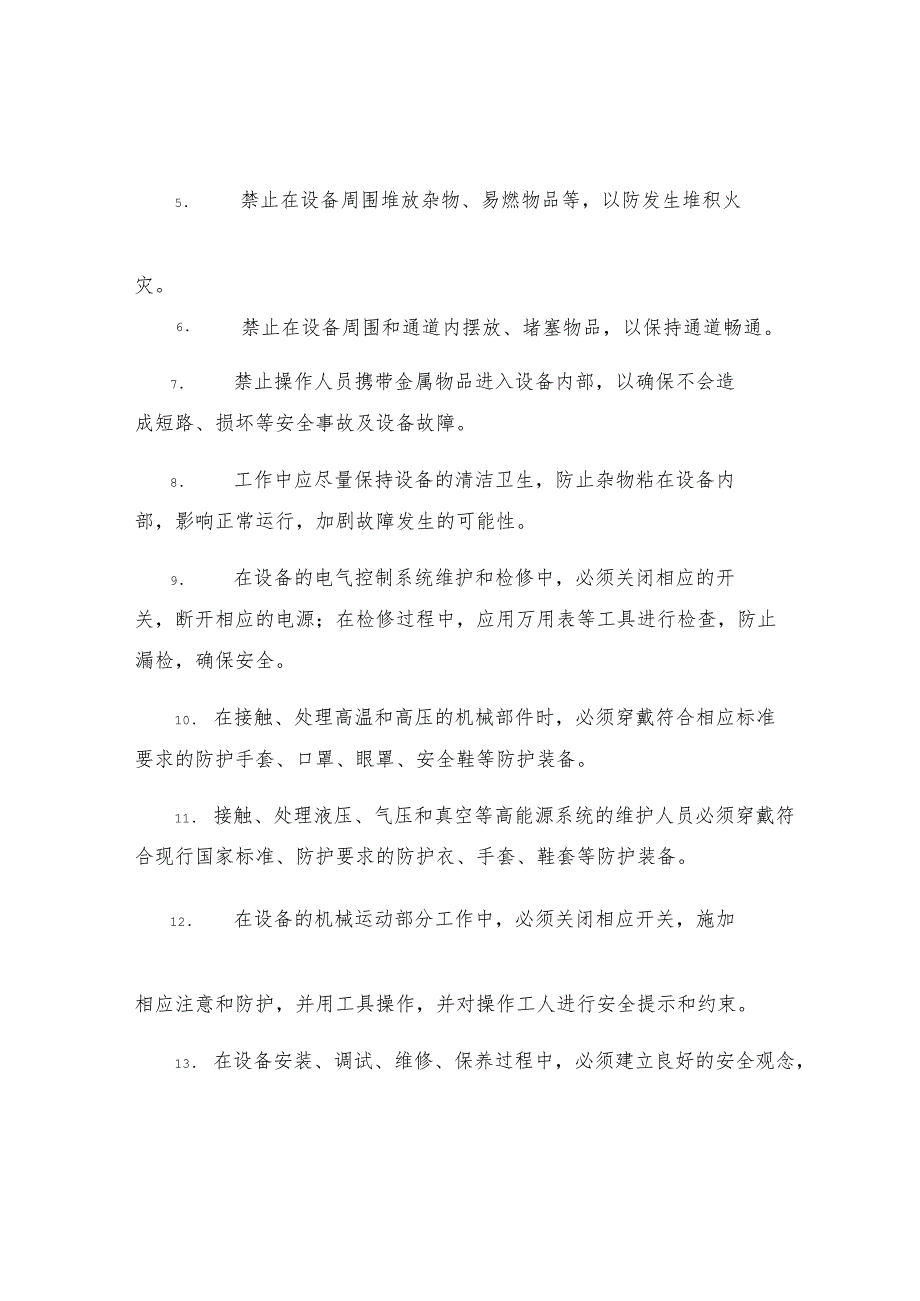 5. 禁止在设备周围堆放杂物、易燃物品等，以防发生堆积火
灾。
6. 禁止在设备周围和通道内摆放、堵塞物品，以保持通道畅通。
7. 禁止操作人员携带金属物品进入设备内部，以确保不会造
成短路、损坏等安全事故及设备故障。
8. 工作中应尽量保持设备的清洁卫生，防止杂物粘在设备内
部，影响正常运行，加剧故障发生的可能性。
9. 在设备的电气控制系统维护和检修中，必须关闭相应的开
关，断开相应的电源；在检修过程中，应用万用表等工具进行检查，防止
漏检，确保安全。
10. 在接触、处理高温和高压的机械部件时，必须穿戴符合相应标准
要求的防护手套、口罩、眼罩、安全鞋等防护装备。
11. 接触、处理液压、气压和真空等高能源系统的维护人员必须穿戴符
合现行国家标准、防护要求的防护衣、手套、鞋套等防护装备。
12. 在设备的机械运动部分工作中，必须关闭相应开关，施加
相应注意和防护，并用工具操作，并对操作工人进行安全提示和约束。
13. 在设备安装、调试、维修、保养过程中，必须建立良好的安全观念，